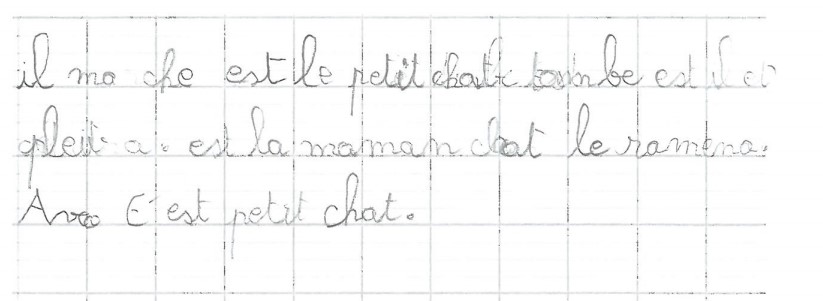 il ma che est le petit chat tombe est il et
pleit a. est la maman chat le ramena.
Avec C'est petit chat.